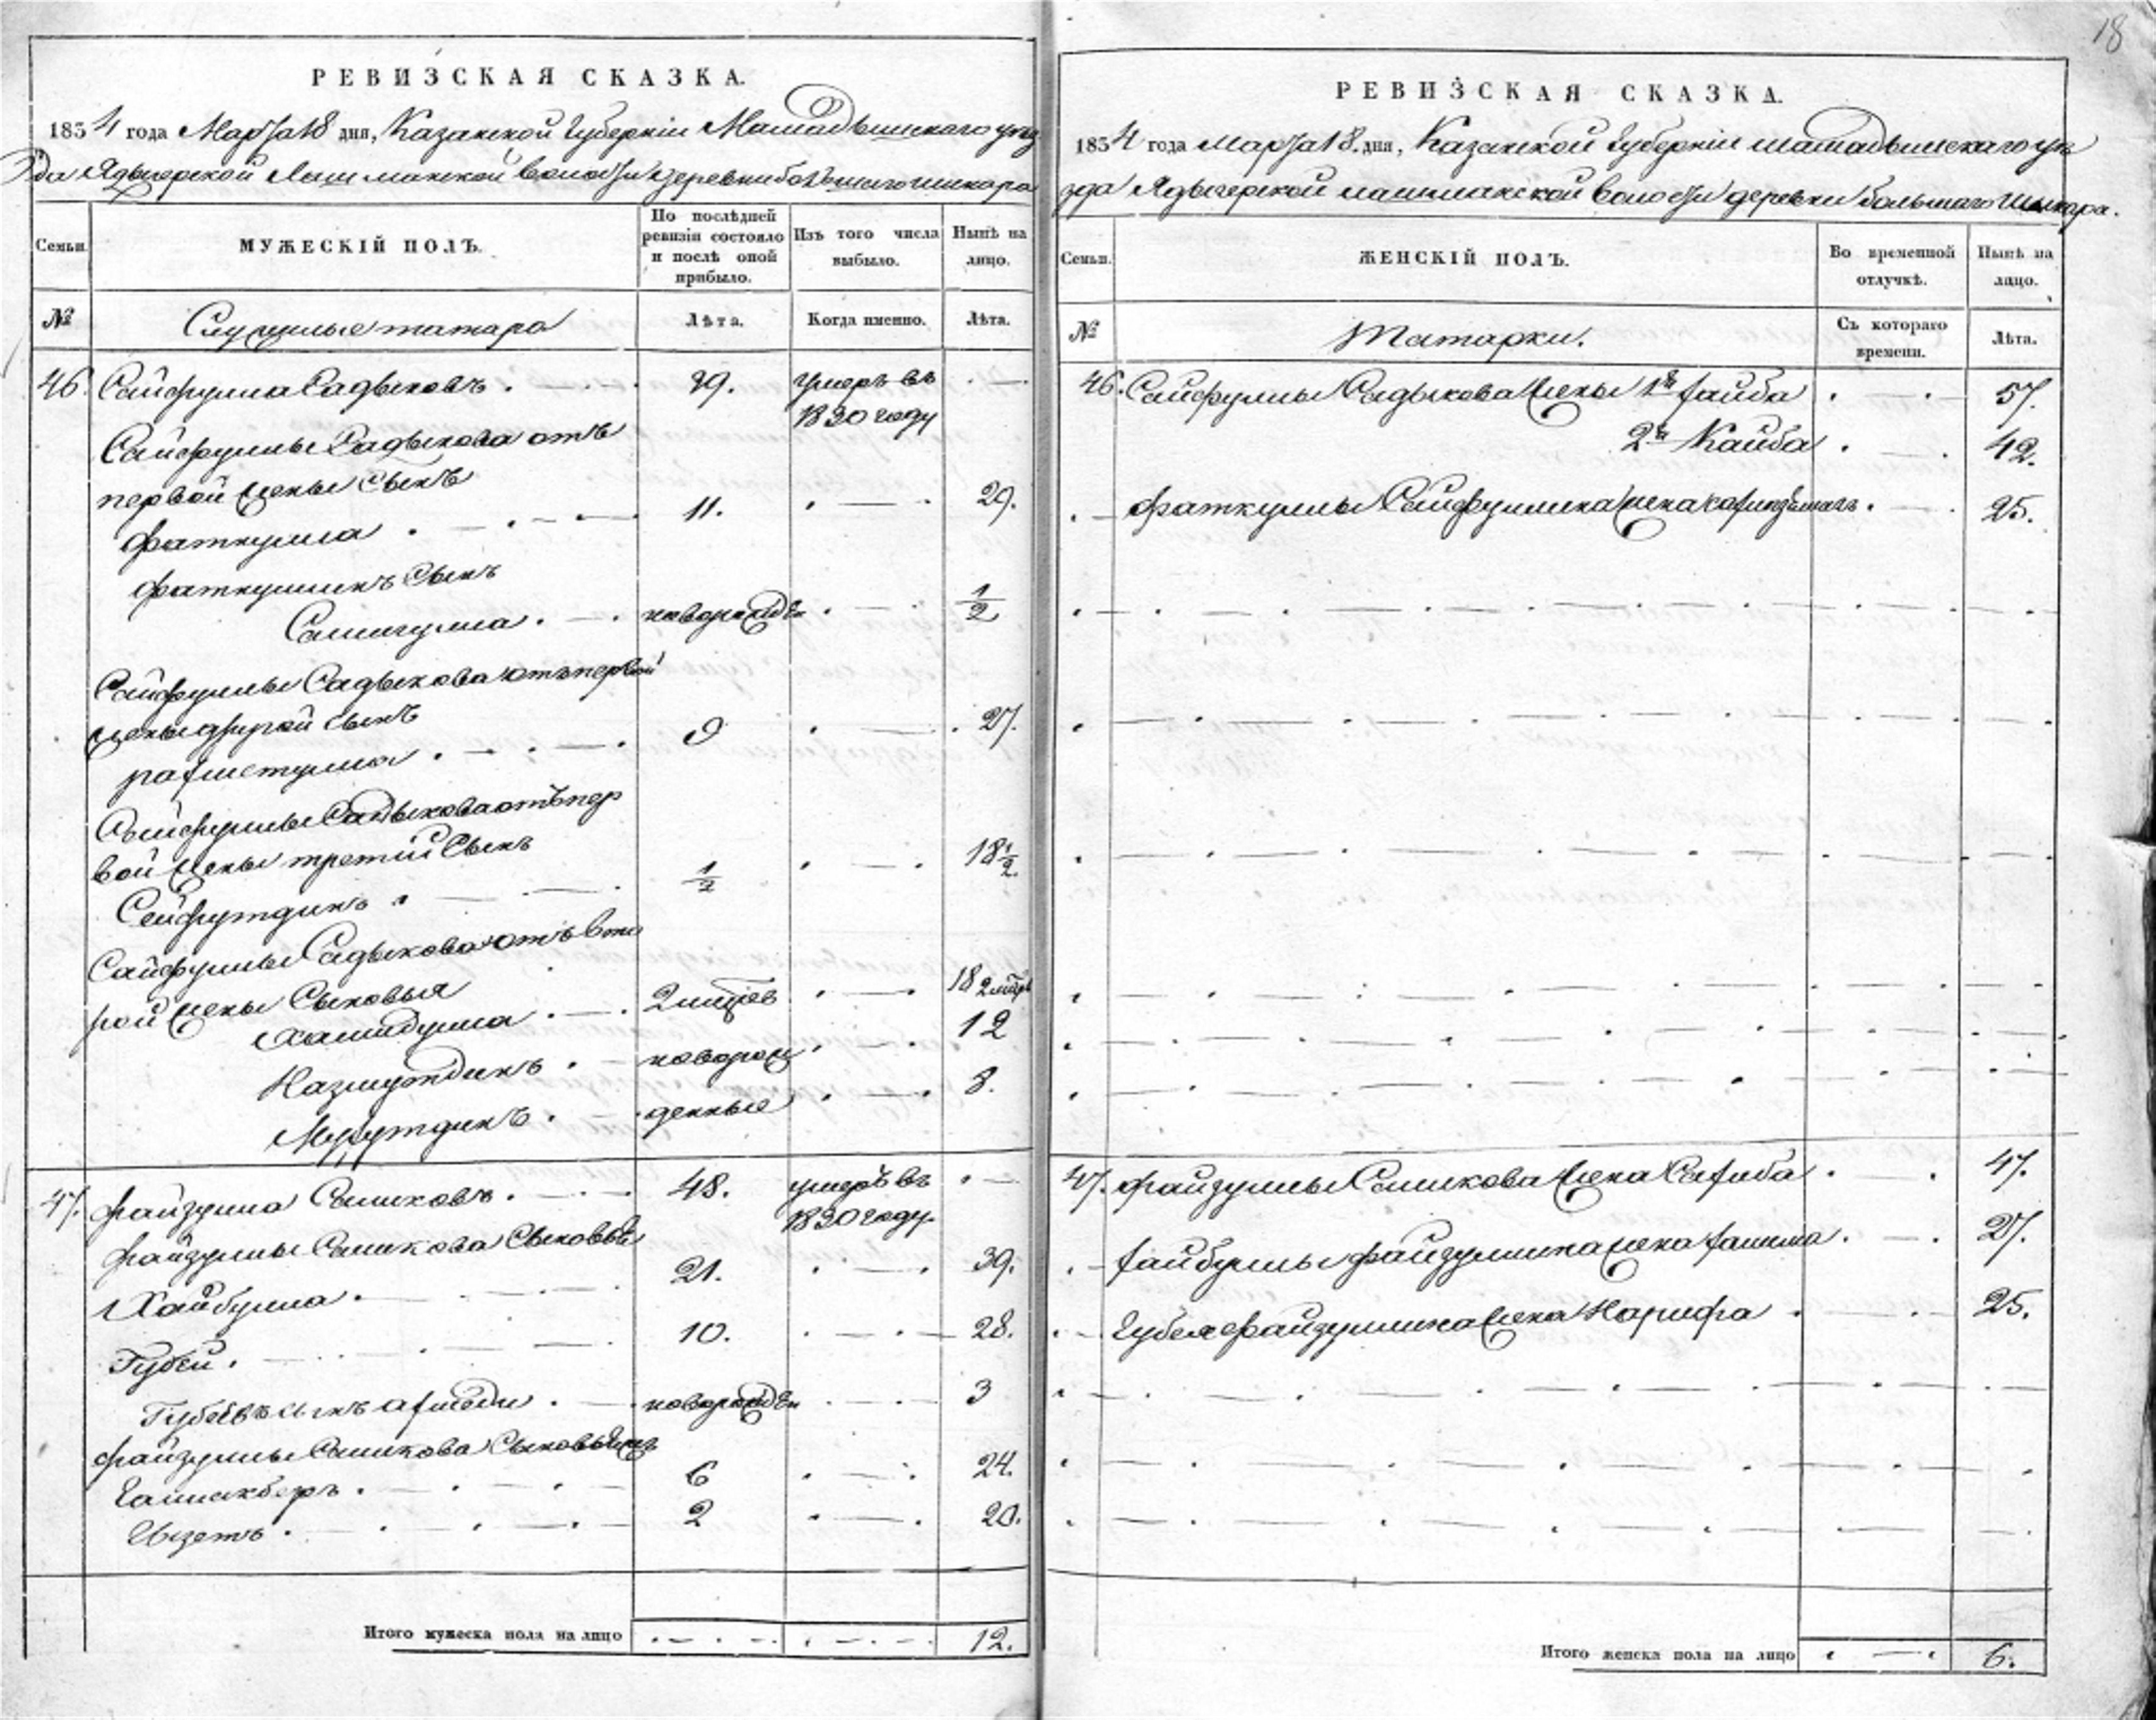 18
РЕВИЗСКАЯ СКАЗКА.
1854 года Марта 18 дня, Казанской Губерніи Мамадышскаго уѣз
да Ядыгерской Лашманской волости деревни большаго шинара
Семьи.
МУЖЕСКІЙ ПОЛЪ.
По послѣдней ревизіи состояло и послѣ оной прибыло.
Изъ того числа выбыло.
Нынѣ на лицо.
№
Служилые татара
Лѣта.
Когда именно.
Лѣта.
46. Сайфулла Садыковъ. 29. умеръ въ
1830 году
Сайфуллы Садыкова отъ
первой жены сынъ
Фаткулла 11. 29.
Фаткуллинъ сынъ
новорожден 1/2
Сайфуллы Садыкова отъ первой
жены другой сынъ
9 27.
Сайфуллы Садыкова отъ пер
вой жены третій сынъ
Сейфутдинъ 1/2 18 1/2.
Сайфуллы Садыкова отъ вто
рой жены сыновья
Халидулла 18
Назмутдинъ новорож 12
денные 8.
47. Файзулла Салиховъ. 48. умеръ въ
1830 году.
Файзуллы Салихова сыновья
1 Хайбулла 21. 39.
Губей. 10. 28.
Губеевъ сынъ новорожден 3
Файзуллы Салихова сыновья
6 24.
2 20.
Итого мужеска пола на лицо 12.
РЕВИЗСКАЯ СКАЗКА.
1854 года Марта 18. дня, Казанской Губерніи мамадышскаго уѣ
зда Ядыгерской лашманской волости деревни большаго Шинара.
Семьи.
ЖЕНСКІЙ ПОЛЪ.
Во временной отлучкѣ.
Нынѣ на лицо.
№
Татарки.
Съ котораго времени.
Лѣта.
46. Сайфуллы Садыкова жены 1я 57.
2я 42.
Фаткуллы Сайфуллина жена 25.
47. Файзуллы Салихова жена 47.
Файзуллина жена 27.
Губея Файзуллина жена 25.
Итого женска пола на лицо 6.